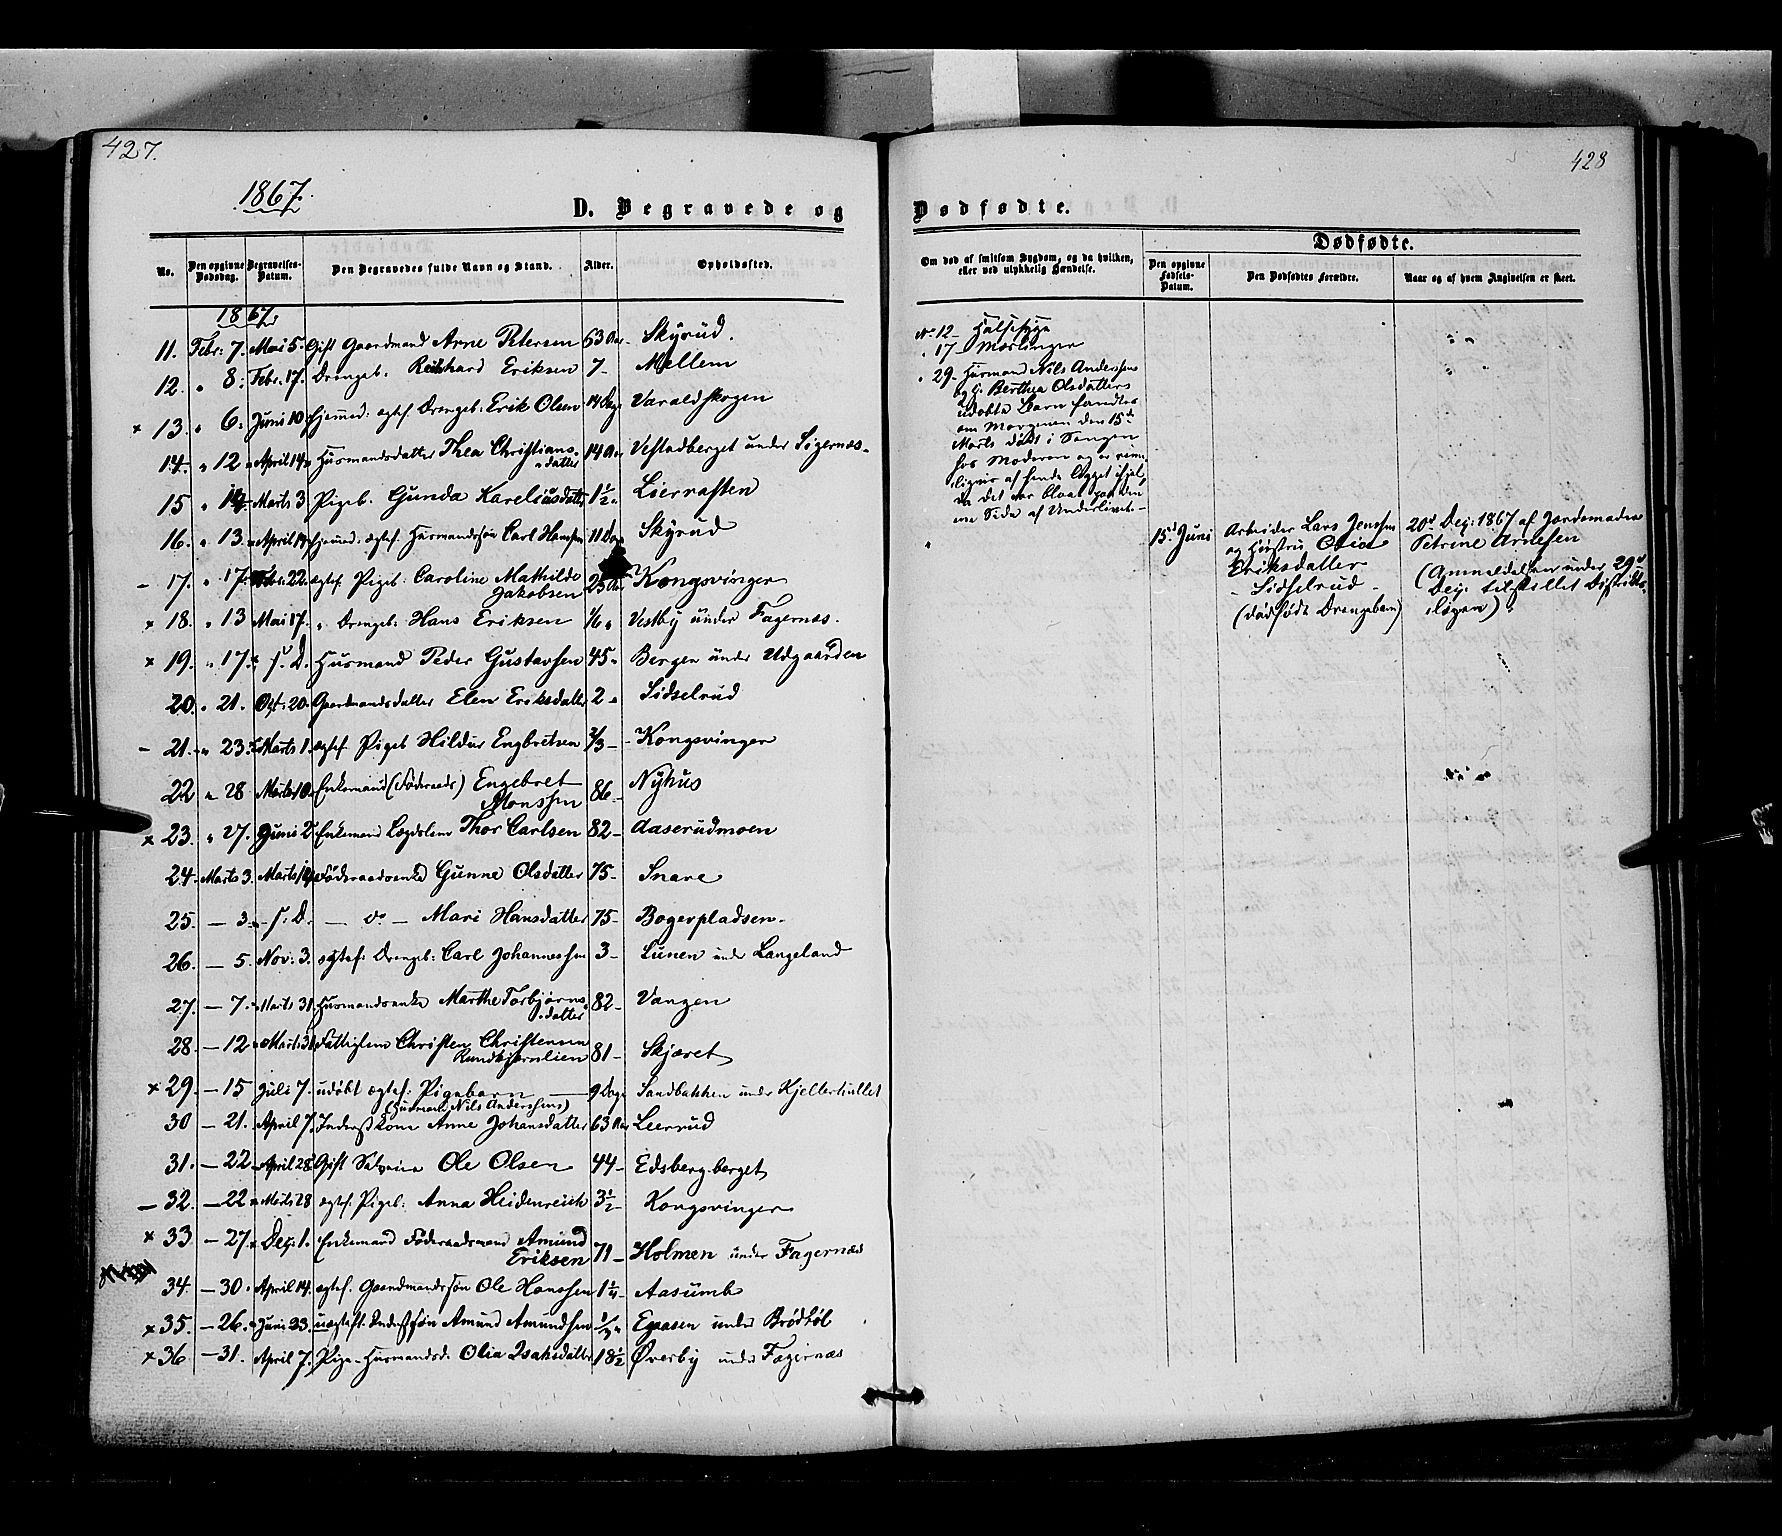 427.
428
1867.
D. Begravede og
Dødfødte.
No.
Den opgivne Dødsdag.
Begravelses-Datum.
Den Begravedes fulde Navn og Stand.
Alder.
Opholdssted.
1867.
11. Febr: 7. Mai 5. Gift Gaardmand Arne Petersen 63 Aar Skyrud.
12. " 8. Febr. 17. Drengeb. Richard Eriksen 7 - Mellem
× 13. " 6. Juni 10. hjemmed: ægtef Drengeb: Erik Olsen 14 Dage Varaldskogen
14. " 12 April 14. Husmandsdatter Thea Christians-
datter 14 Aar Vestadberget under Sigernæs.
15 " 14. Marts 3 Pigeb. Gunda Kareliusdatter 1½ " Liernæsten
16. " 13. April hjemmed. ægtef. Husmandssøn Carl Hansen 11 Dage Skyrud
- 17. " 17. Febr. 22. ægtef. Pigeb. Caroline Mathilde
Jakobsen Kongsvinger
× 18. " 13 Mai 17. " Drengeb: Hans Eriksen 1/6 " Vestby under Fagernæs.
× 19. " 17. s. D. Husmand Peder Gustavsen 45 " Bergen under Udgaarden
20. " 21. Oct: 20. Gaardmandsdatter Elen Eriksdatter 2 " Sidselrud
- 21. " 23. Marts 1. ægtef. Pigeb Hildur Engbretsen 2/3 - Kongsvinger
22 " 28 Marts 10. Enkemand (Føderaads) Engebret
Monssen 86 - Nyhus
× 23. " 27. Juni 2. Enkemand Lægdslem Thor Carlsen 82 - Aaserudmoen
24. Marts 3. Marts Føderaadsenke Gunne Olsdatter 75 - Snare
25 - 3. s. D. - do - Mari Hansdatter 75 - Bogerpladsen.
26. - 5. Nov: 3. ægtef: Drengeb: Carl Johannessen 3 - Lunen under Langeland
27. - 7. Marts 31. Husmandsenke Marthe Torbjørns-
datter 82 - Vangen
28. - 12 Marts 31. Fattiglem Christen Christensen
Rundkjernlien 81 - Skjæret
× 29. - 15 Juli 7. udøbt ægtef. Pigebarn 9 Dage Sandbakken under Kjellerhullet
(Husmand Nils Anderssens)
30 - 21. April 7. Inderstkone Anne Johansdatter 63 Aar Leerrud
31. - 22 April 28. Gift Ole Olsen 44 - Edsberg-berget
- 32. - 22 Marts 28 ægtef. Pigeb: Anna Heidenreich 3½ Kongsvinger
× 33 - 27. Dec. 1. Enkemand Føderaadsmand Amund
Eriksen 71 - Holmen under Fagernæs
34. - 30. April 14. ægtef. Gaardmandssøn Ole Hanssen 1¼ - Aasumb
× 35. - 26. Juni 23. uægtef. Inderstsøn Amund Amundsen Egaasen under Brødbøl
× 36 - 31. April 7. Pige - Husmandsd. Olia Isaksdatter 18½ Øverby under Fagernæs
Om død af smitsom Sygdom, og da hvilken,
eller ved ulykkelig Hændelse.
Dødfødte.
Den opgivne Fødsels-Datum.
Den Dødfødtes Forældre.
Naar og af hvem Angivelsen er skeet.
No 12 - Halssyge
" 17 - Mæslinger
" 29 - Husmand Nils Anderssens
og h. Berthea Olsdatters
udøbte Barn fandtes
om Morgenen den 15de
Marts dødt i Sengen
hos Moderen og er rime-
ligvis af hende ligget ihjel,
da det var blaat paa den
ene Side af Underlivet. -
15d Juni
Arbeider Lars Jenssen
og Hustru Olia
Eriksdatter
- Sidselrud -
(dødfødt Drengebarn)
20d Dec: 1867 af Jordemoder
Petrine Arnesen
(Anmeldelsen under 29d
Dec. tilstillet Distrikts-
lægen).